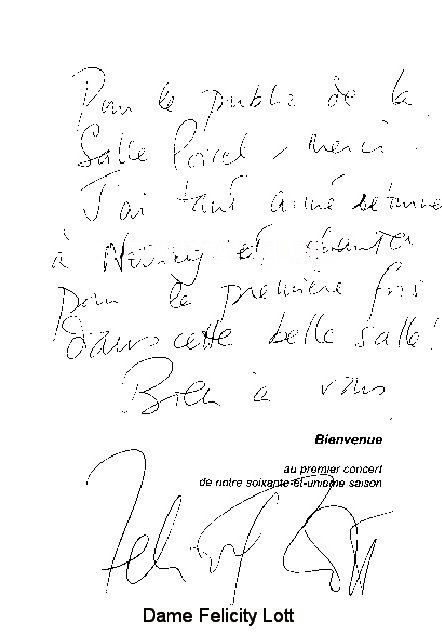 Pour le public de la
Salle Poirel, merci.
J'ai tant aimé retourner
à Nancy et chanter
pour la première fois
dans cette belle salle!
Bien à vous
Bienvenue
au premier concert
de notre soixante-et-unième saison
Felicity Lott
Dame Felicity Lott